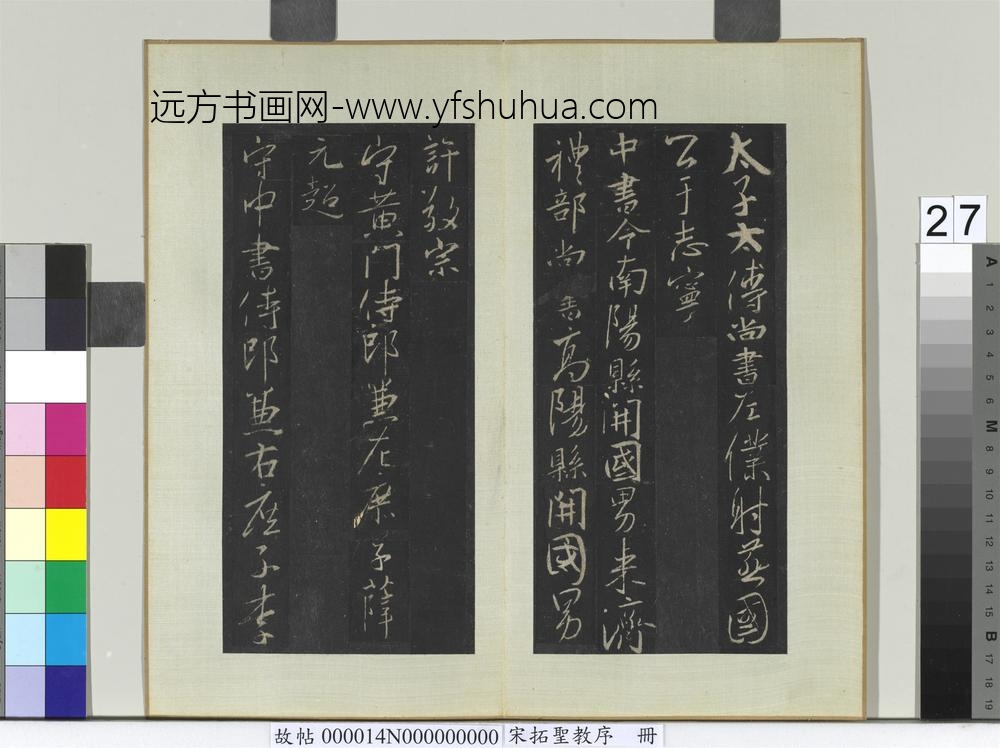 远方书画网-www.yfshuhua.com
太子太傅尚書左僕射燕國
公于志寧
中書令南陽縣開國男来濟
禮部尚書高陽縣開國男
許敬宗
守黄門侍郎兼左庶子薛
元超
守中書侍郎兼右庶子李
27
A
1
2
3
4
5
6
M
8
9
10
11
12
13
14
15
B
17
18
19
故帖 000014N000000000 宋拓聖教序 冊